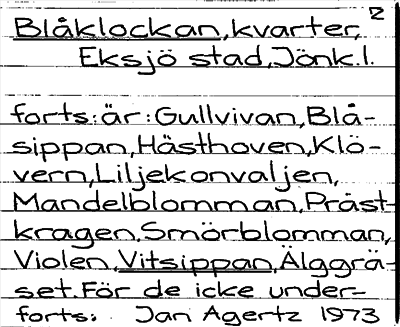 2
Blåklockan, kvarter,
Eksjö stad, Jönk.l.
forts: är: Gullvivan, Blå-
sippan, Hästhoven, Klö-
vern, Liljekonvaljen,
Mandelblomman, Präst-
kragen, Smörblomman,
Violen, Vitsippan, Älggrä-
set. För de icke under-
forts: Jan Agertz 1973